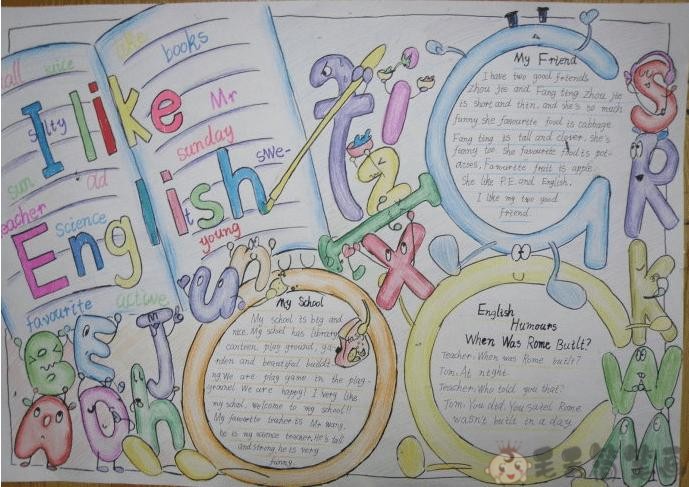 I like
English
tall
nice
like
books
salty
Mr
sunday
sun
old
swe-
teacher
science
it
young
favourite
active
My Friend
I have two good friends
Zhou jie and Fang ting Zhou jie
is short and thin. and she's so much
funny she favourite food is cabbage.
Fang ting is tall and clever. she's
funny too. She favourite food is pot-
atoes, Favourite fruit is apple.
She like P.E. and English.
I like my two good
friend.
My School
My school is big and
nice. My school has library
canteen play ground, ga-
rden and beautiful buildi
ng. We are play game in the play-
ground. We are happy! I very like
my school. welcome to my school!!
My favourite teacher is Mr Wang,
he is my science teacher. He's tall
and strong, he is very
funny.
English
Humours
When Was Rome Built?
Teacher: When was Rome built?
Tom: At night.
Teacher: Who told you that?
Tom: You did. You saied Rome
wasn't built in a day.
t i z I x
G
S R K W M
u n
B E J
A O h